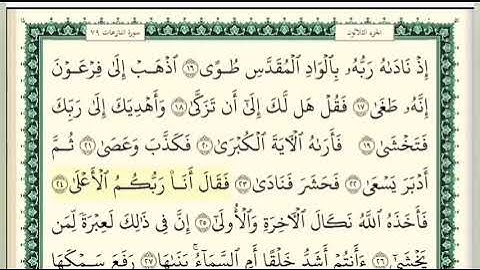 سورة النازعات ٧٩
الجزء الثلاثون
إِذْ نَادَىٰهُ رَبُّهُۥ بِالْوَادِ الْمُقَدَّسِ طُوًى ١٦ اذْهَبْ إِلَىٰ فِرْعَوْنَ
إِنَّهُۥ طَغَىٰ ١٧ فَقُلْ هَل لَّكَ إِلَىٰٓ أَن تَزَكَّىٰ ١٨ وَأَهْدِيَكَ إِلَىٰ رَبِّكَ
فَتَخْشَىٰ ١٩ فَأَرَىٰهُ الْآيَةَ الْكُبْرَىٰ ٢٠ فَكَذَّبَ وَعَصَىٰ ٢١ ثُمَّ
أَدْبَرَ يَسْعَىٰ ٢٢ فَحَشَرَ فَنَادَىٰ ٢٣ فَقَالَ أَنَا۠ رَبُّكُمُ الْأَعْلَىٰ ٢٤
فَأَخَذَهُ اللَّهُ نَكَالَ الْآخِرَةِ وَالْأُولَىٰٓ ٢٥ إِنَّ فِي ذَٰلِكَ لَعِبْرَةً لِّمَن
يَخْشَىٰٓ ٢٦ ءَأَنتُمْ أَشَدُّ خَلْقًا أَمِ السَّمَآءُ ۚ بَنَىٰهَا ٢٧ رَفَعَ سَمْكَهَا